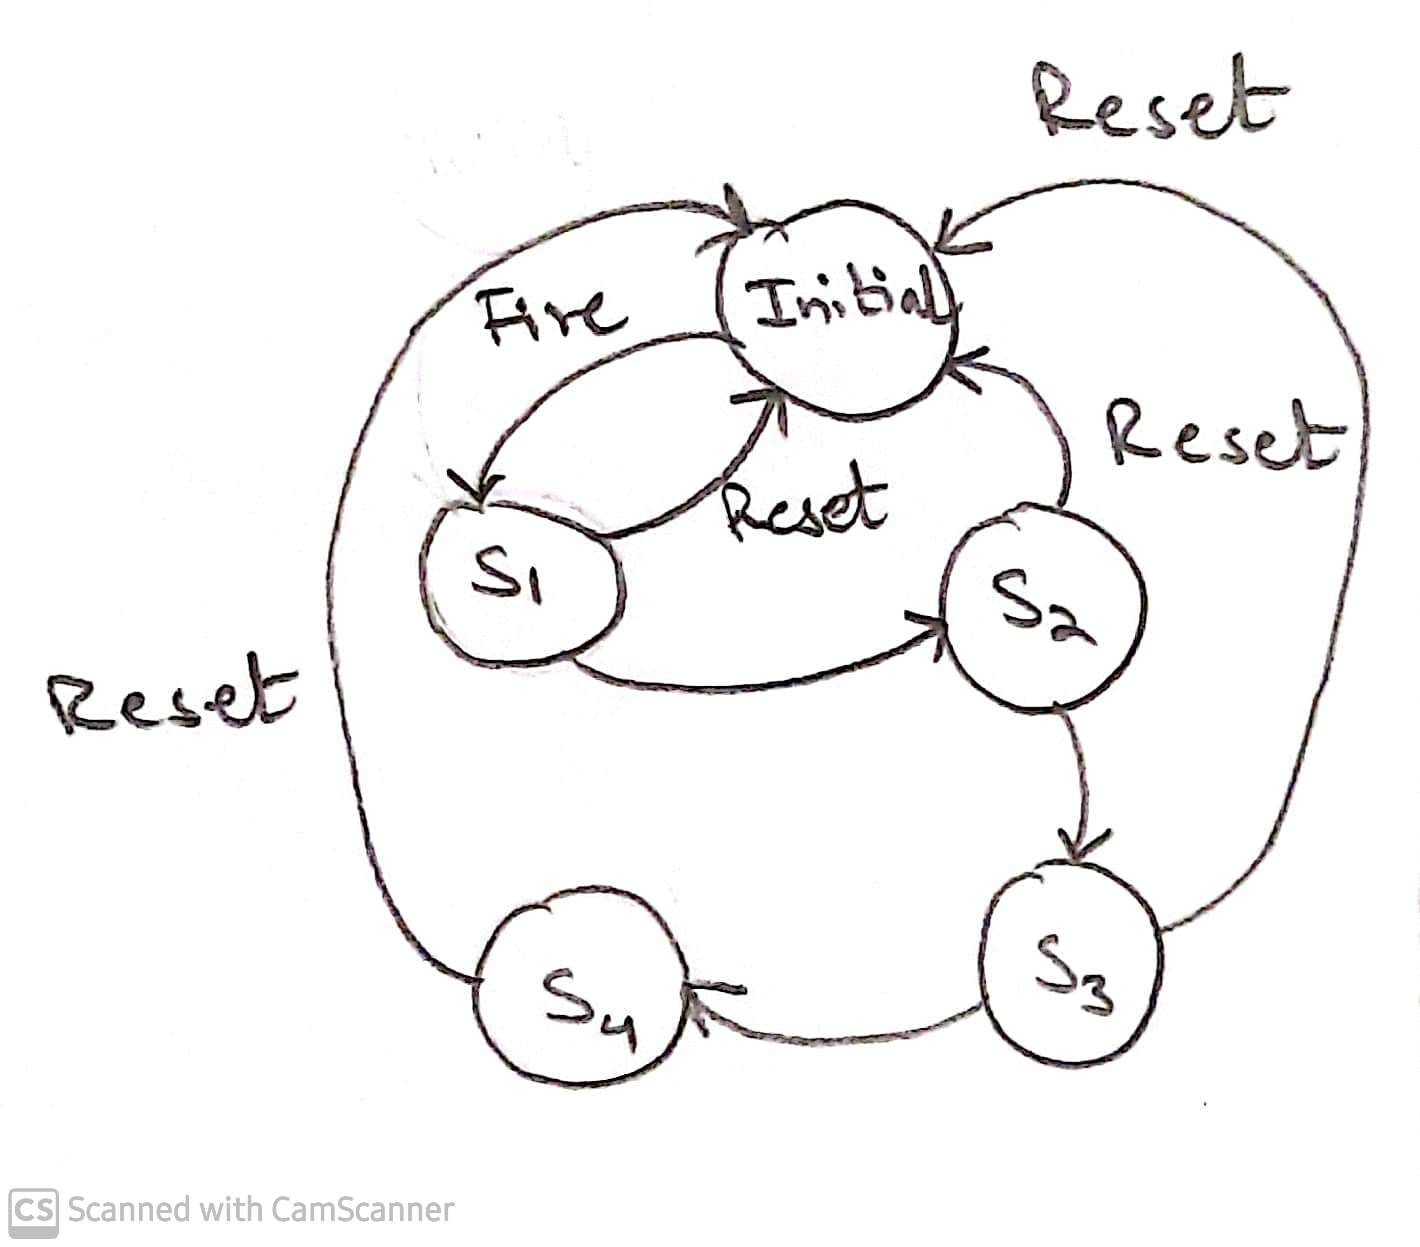 Reset
Fire
Initial
Reset
Reset
S1
S2
Reset
S3
S4
CS Scanned with CamScanner